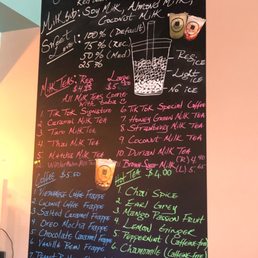 Milk Sub: Soy Milk, Almond Milk,
Coconut Milk
Sweet level:
100% (Default)
75% (Rec.)
50% (Med.)
25%
Reg Ice
Light Ice
No Ice
Milk Teas: Reg Large
All Milk Teas Come
1. TikTok Signature
2. Caramel Milk Tea
3. Taro Milk Tea
4. Thai Milk Tea
5. Matcha Milk Tea
6. TikTok Special Coffee
7. Honey Green Milk Tea
8. Strawberry Milk Tea
9. Coconut Milk Tea
10. Durian Milk Tea
Brown Sugar Milk
(R) 4.90
(L) 5.65
Coffee $5.50
1. Vietnamese Coffee Frappe
2. Coconut Coffee Frappe
3. Salted Caramel Frappe
4. Oreo Mocha Frappe
5. Chocolate Caramel Frappe
6. Vanilla Bean Frappe
Hot Tea $4.00
1. Chai Spice
2. Earl Grey
3. Mango Passion Fruit
4. Lemon Ginger
5. Peppermint (Caffeine-free)
6. Chamomile (Caffeine-free)